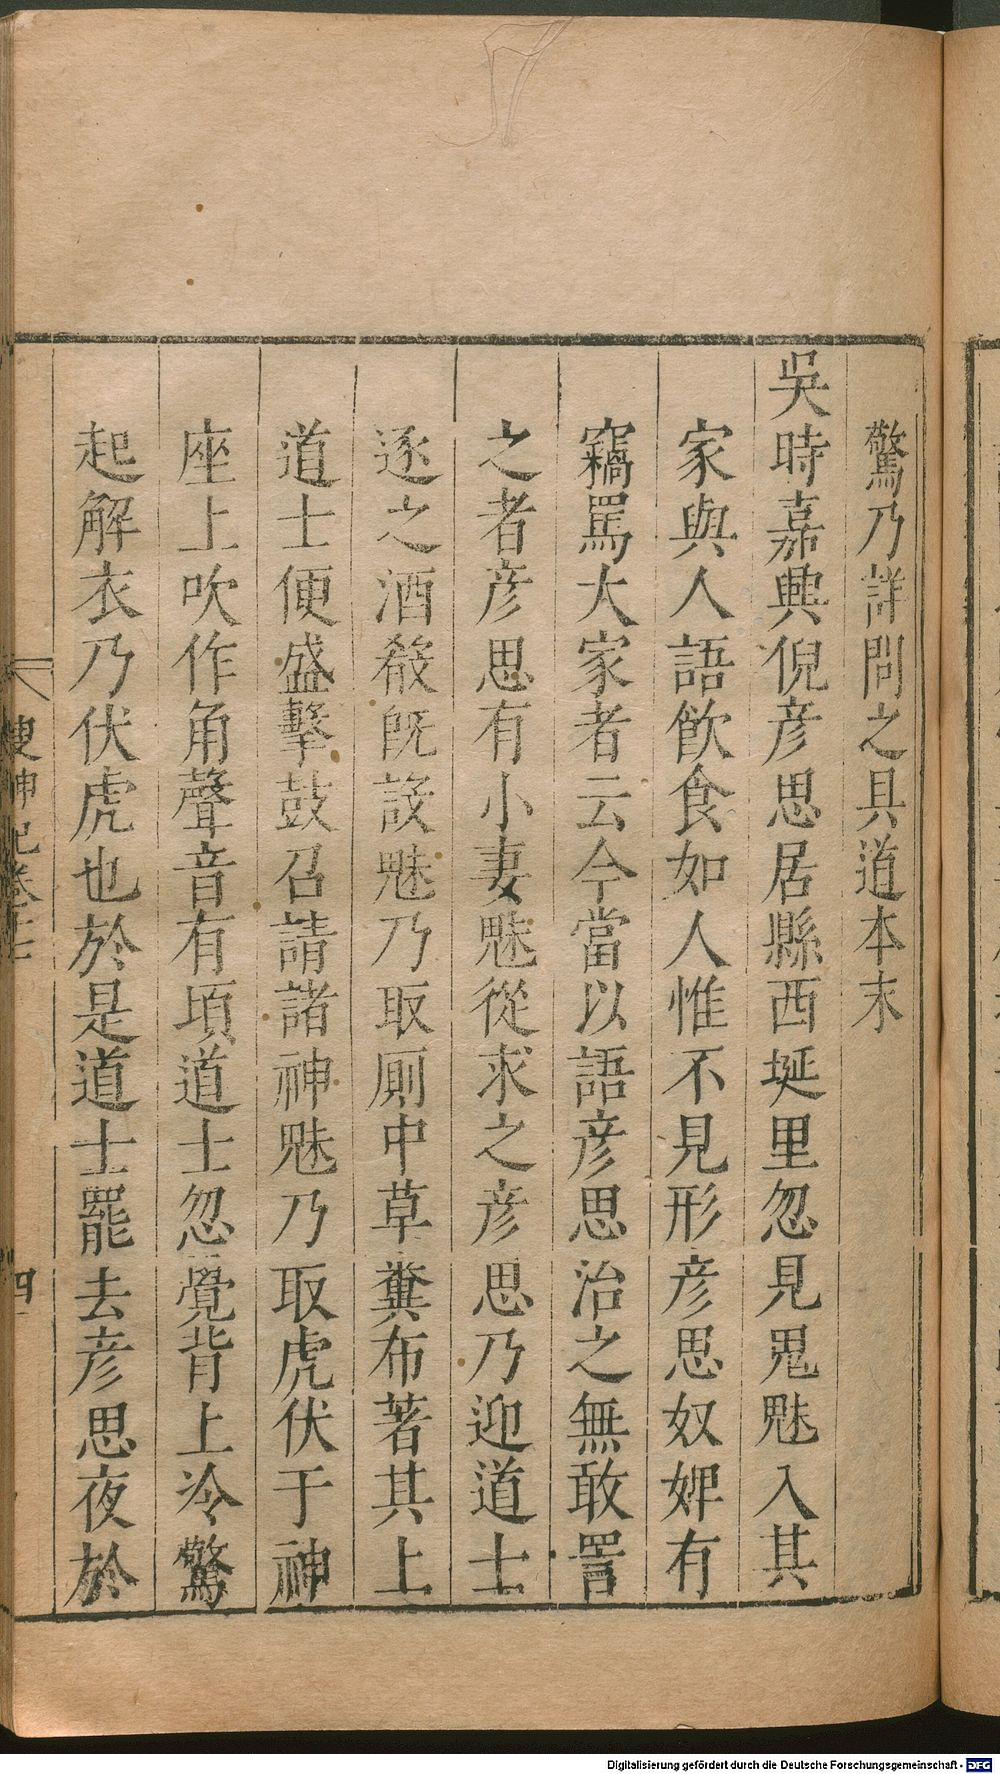 驚乃詳問之具道本末
吳時嘉興倪彦思居縣西埏里忽見鬼魅入其
家與人語飮食如人惟不見形彦思奴婢有
竊罵大家者云今當以語彦思治之無敢詈
之者彦思有小妻魅從求之彦思乃迎道士
逐之酒殽旣設魅乃取厠中草糞布著其上
道士便盛擊鼓召請諸神魅乃取虎伏于神
座上吹作角聲音有頃道士忽覺背上冷驚
起解衣乃伏虎也於是道士罷去彦思夜於
搜神記卷十七
四
Digitalisierung gefördert durch die Deutsche Forschungsgemeinschaft - DFG